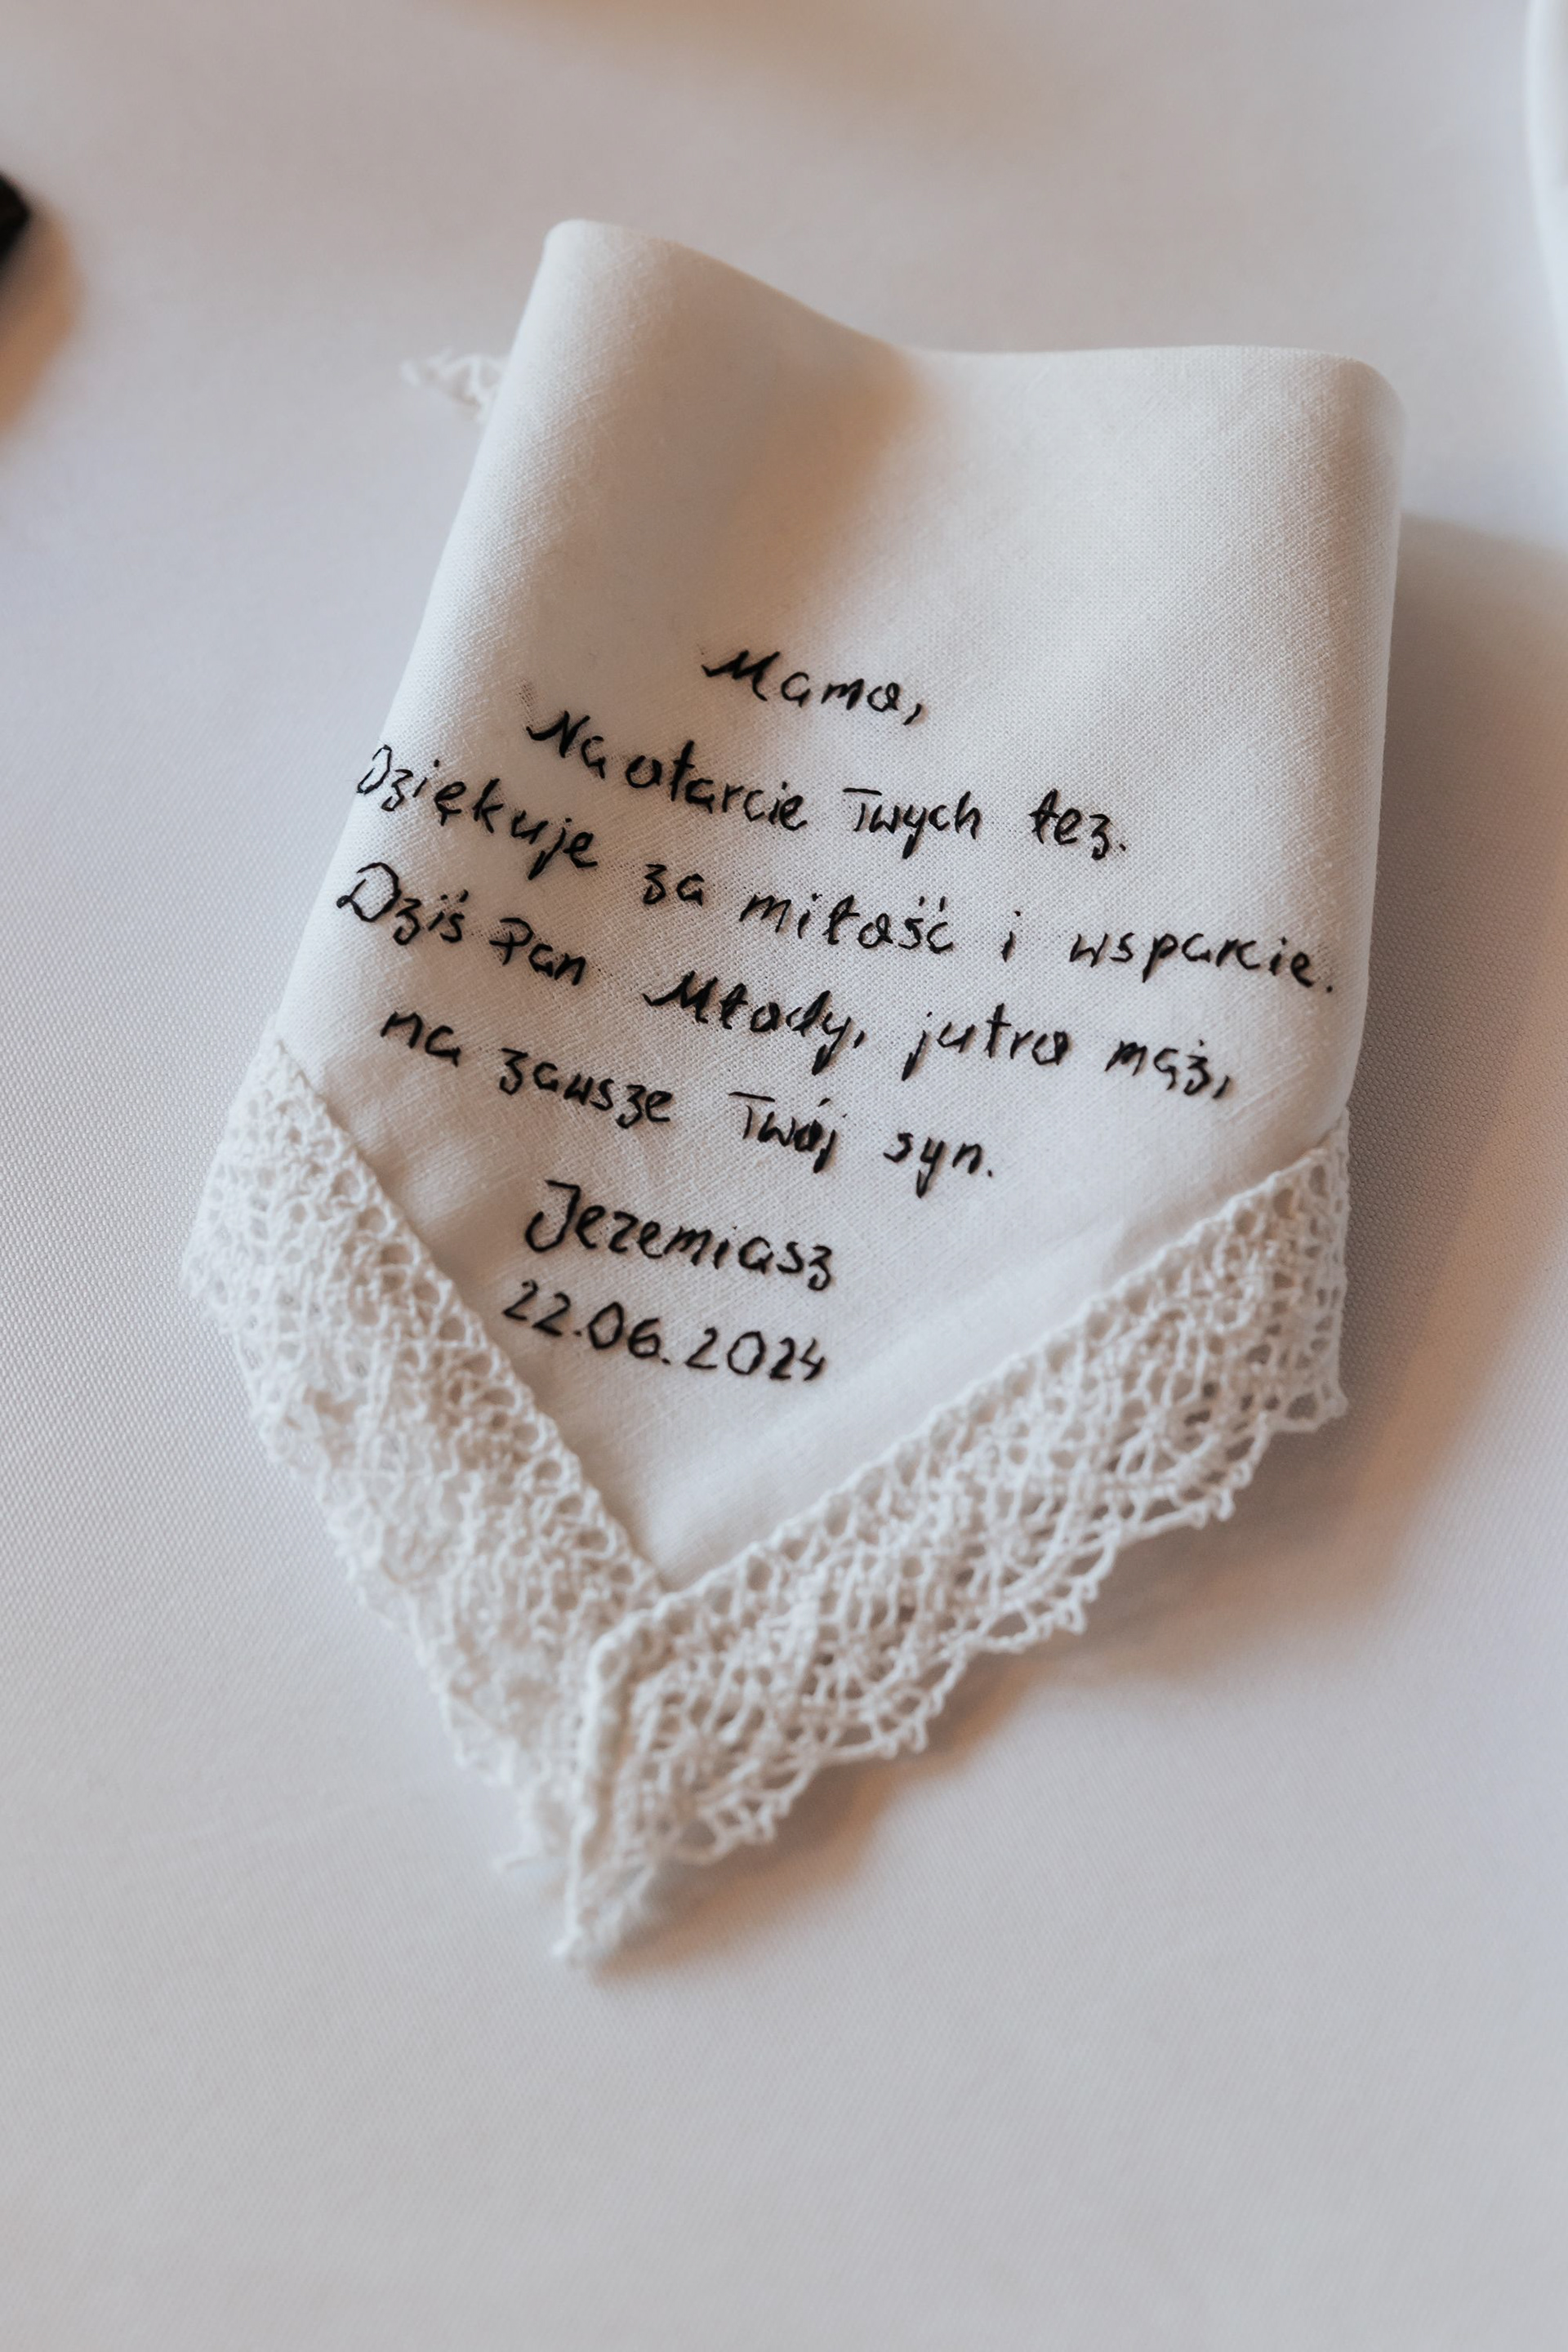 Mamo,
Na otarcie Twych łez.
Dziękuję za miłość i wsparcie.
Dziś Pan Młody, jutro mąż,
na zawsze Twój syn.
Jeremiasz
22.06.2024